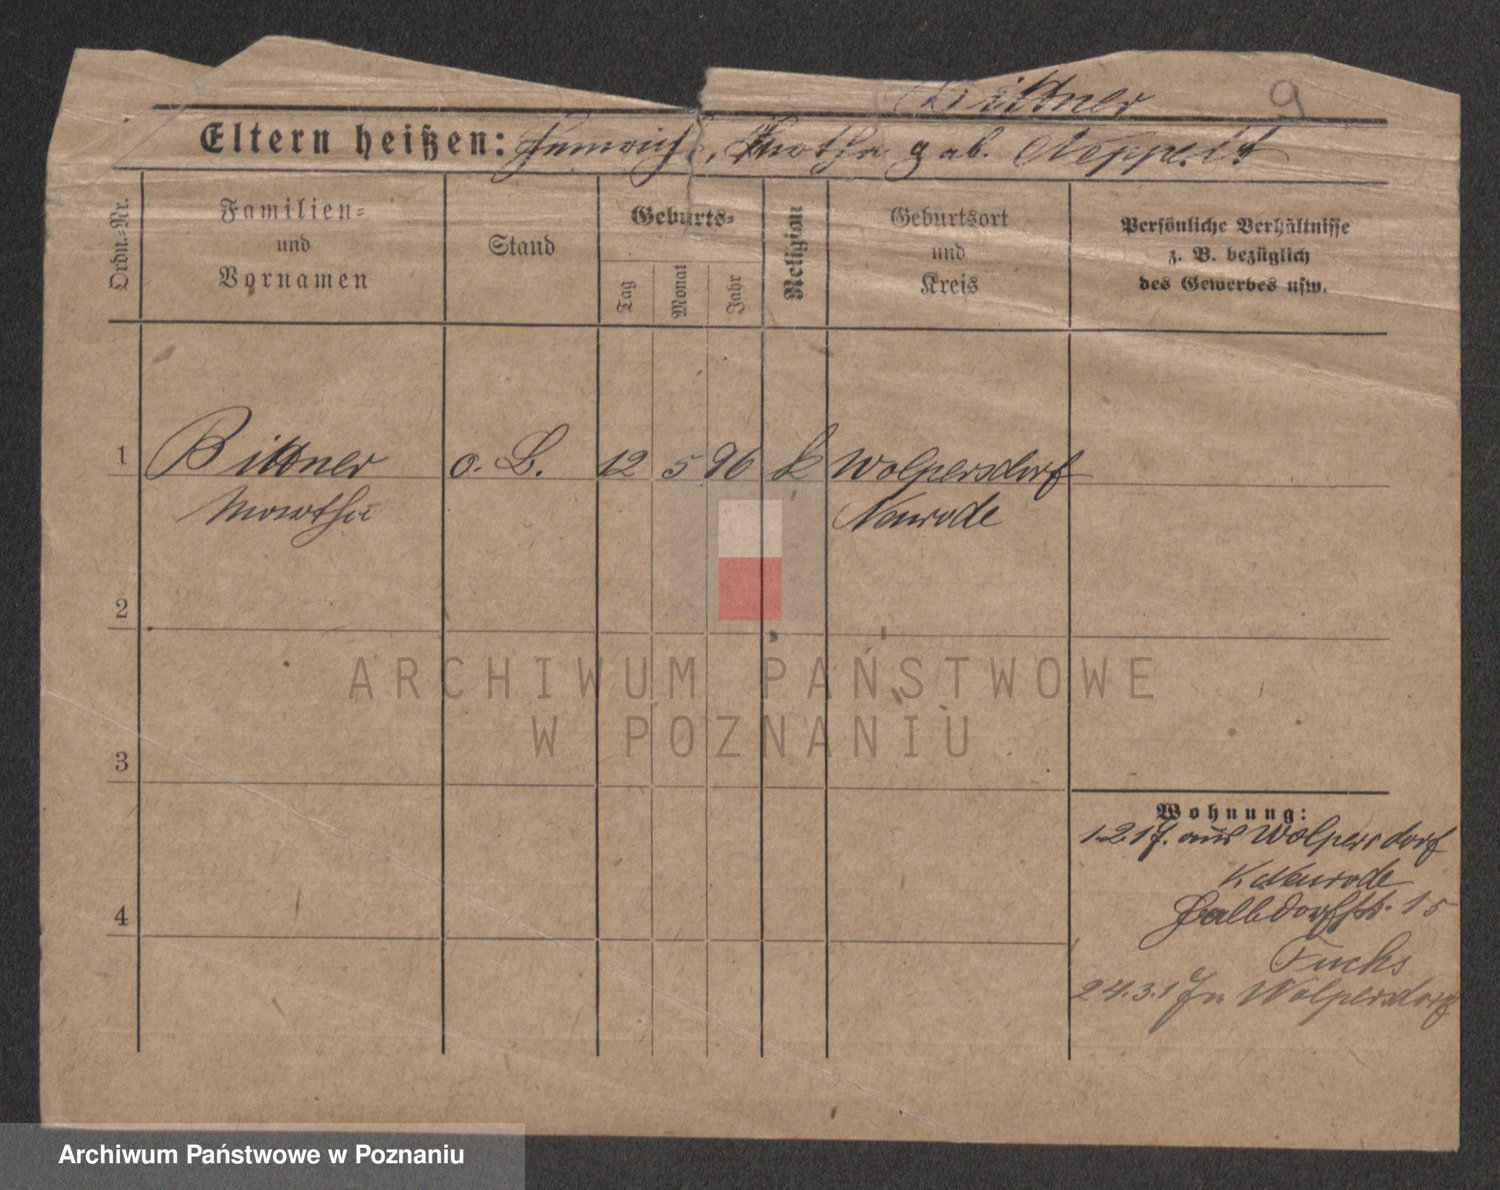 Bittner 9
Eltern heißen: Heinrich, Martha geb. Neppelt
Ordn.=Nr.
Familien=
und
Vornamen
Stand
Geburts=
Tag
Monat
Jahr
Religion
Geburtsort
und
Kreis
Persönliche Verhältnisse
z. B. bezüglich
des Gewerbes usw.
1 Bittner o. B. 12 5 96 k Wolpersdorf
Martha Neurode
2
3
4
Wohnung:
1.2.17. aus Wolpersdorf
K. Neurode
15
Fuchs
24.3.17 Wolpersdorf
ARCHIWUM PAŃSTWOWE
W POZNANIU
Archiwum Państwowe w Poznaniu